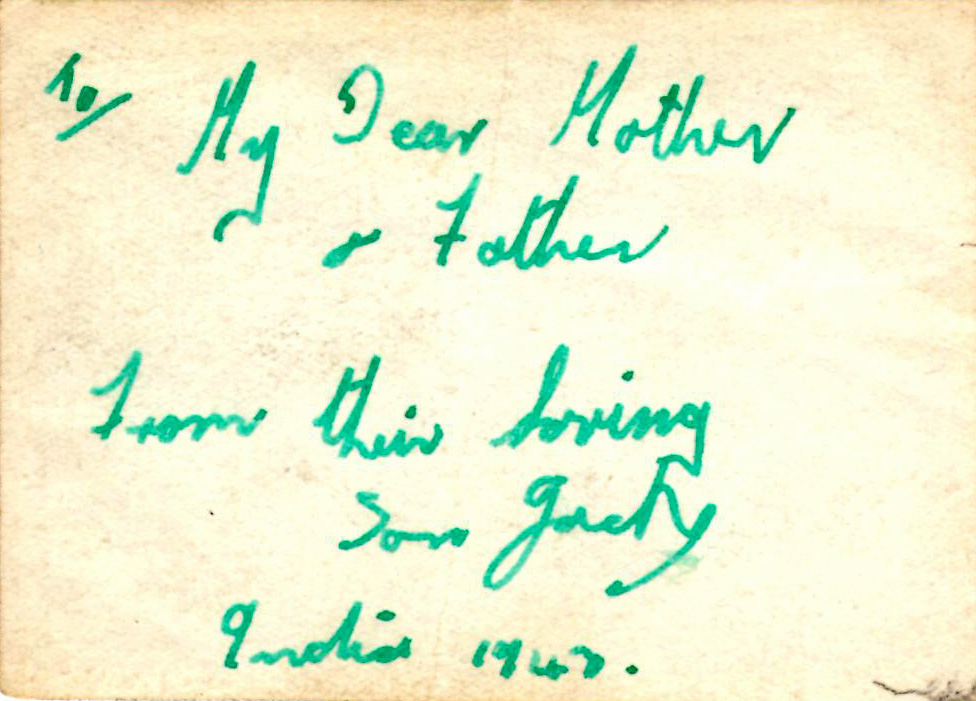 To/ My Dear Mother
& Father
From their loving
Son Jacky
India 1943.